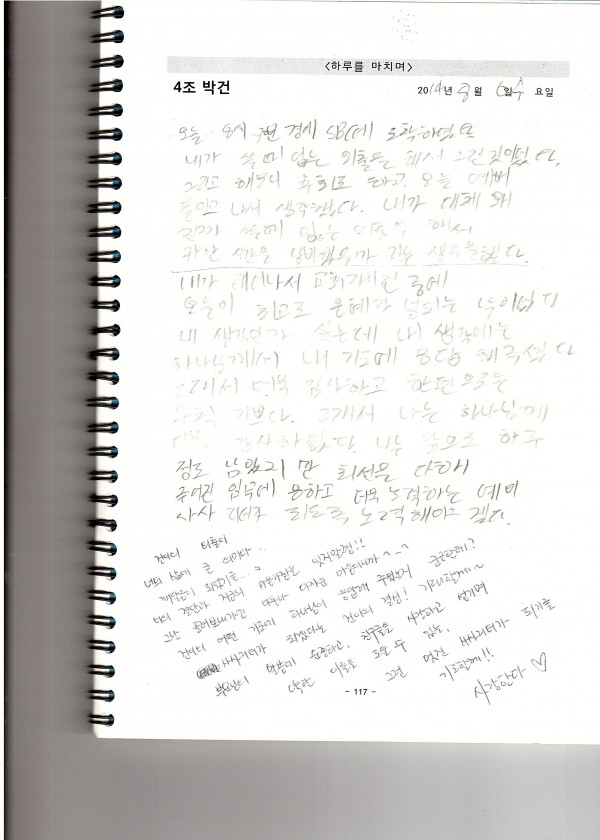 <하루를 마치며>
4조 박건
2014년 8월 6일 수 요일
오늘 8시 경에 SBC에 도착하였다
내가 쓸데 없는 외출을 해서 그런 것이였다.
그리고 해보니 후회도 되고 오늘 예배
들이고 나서 생각했다. 내가 대체 왜
쓸데 없는 해서
시간을 낭비했을까 라는 생각을 했다.
내가 태어나서 교회가서 중에
오늘이 최고로 은혜가 넘치는 날이였다
내 생각인가 싶은데 내 생각에는
하나님께서 내 기도에 응답 해주셨다
그래서 더욱 감사하고 한편으로는
무척 기쁘다. 그래서 나는 하나님께
더욱 감사하였다. 나는 앞으로 하루
정도 남았지만 최선을 다해
주어진 임무에 응하고 더욱 노력하는 예비
사사 리더가 되도록 노력해야 겠다.
건이의 이틀이
너의 삶에 큰 의미와..
깨달음이 되었기를..
너의 결단과 지금의 마음가짐을 잊지말렴!!
그냥 흘려보내기엔 너무나 아까운 마음이니까 ~-~
건이의 어떤 기도에 하나님이 응답해 주셨는지 궁금한데?
사사리더가 되겠다는 건이의 결심! 기대할게~
부모님의 말씀에 순종하고, 친구들을 사랑하고 섬기며
약한 이들을 도울 수 있는,
그런 멋진 사사리더가 되기를
기도할게!!
사랑한다 ♡
- 117 -